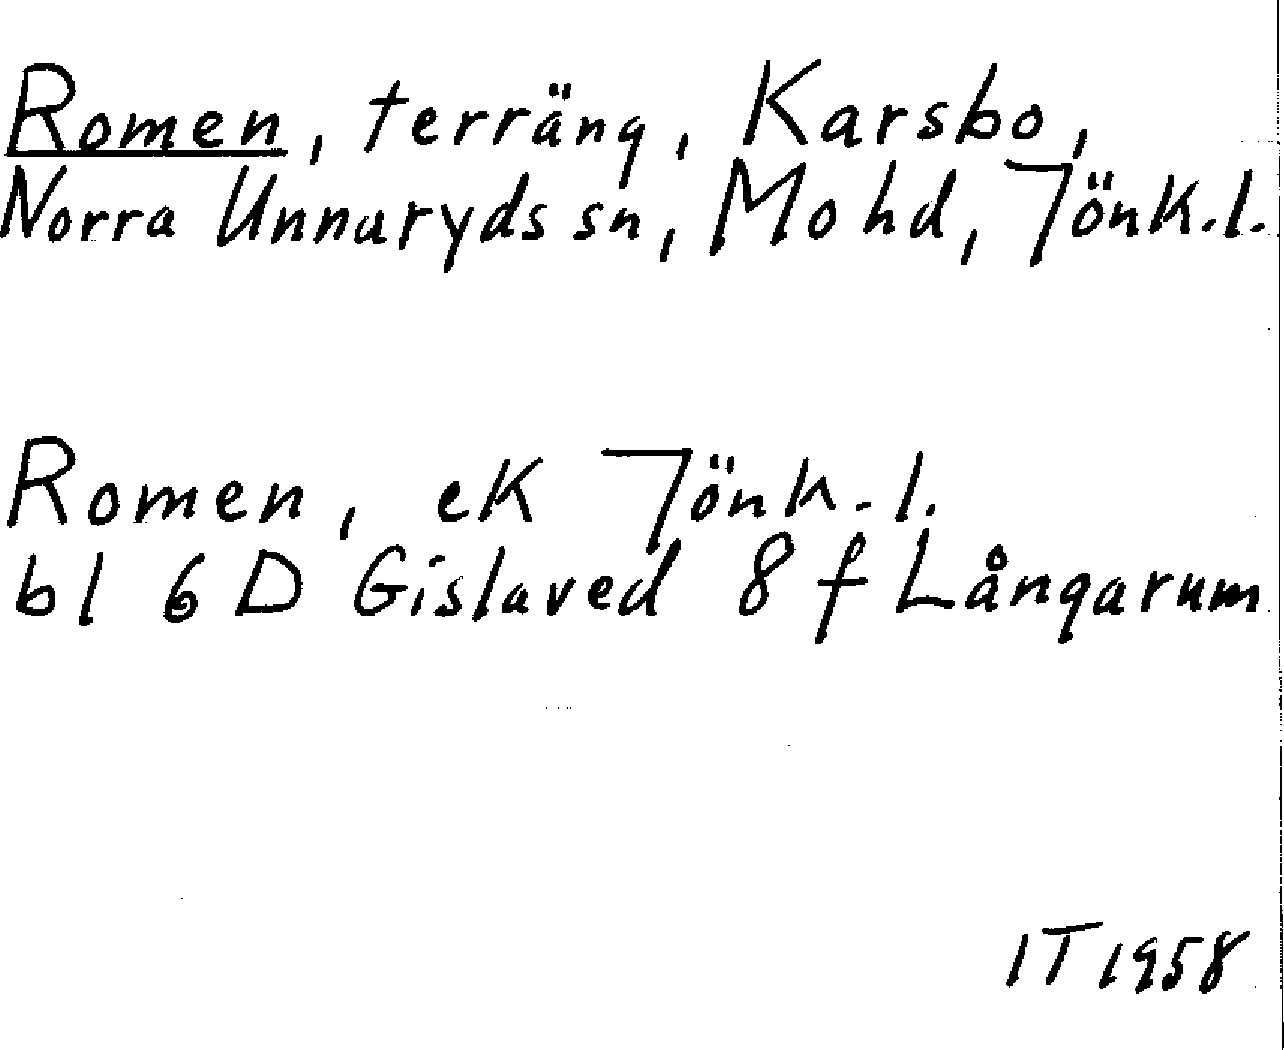 Romen, terräng, Karsbo,
Norra Unnaryds sn, Mo hd, Jönk.l.
Romen, ek Jönk.l.
bl 6 D Gislaved 8 f Långarum
IT 1958